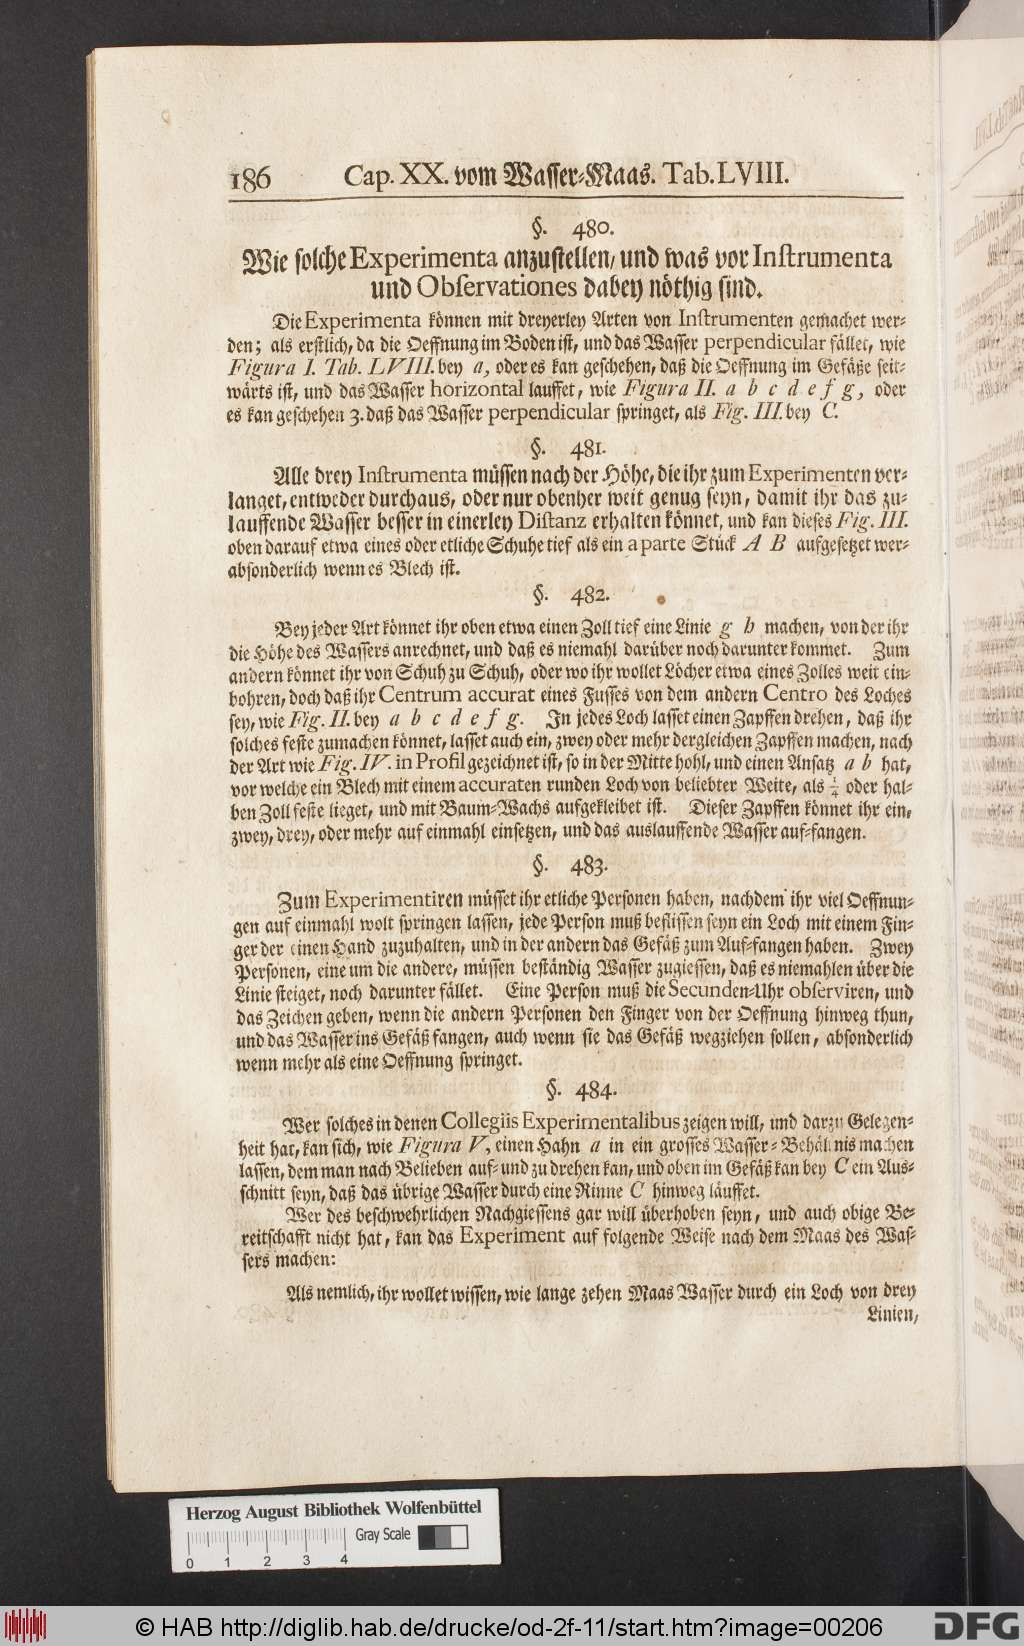 186 Cap. XX. vom Wasser-Maas. Tab. LVIII.
§. 480.
Wie solche Experimenta anzustellen, und was vor Instrumenta
und Observationes dabey nöthig sind.
Die Experimenta können mit dreyerley Arten von Instrumenten gemachet wer-
den; als erstlich, da die Oeffnung im Boden ist, und das Wasser perpendicular fället, wie
Figura I. Tab. LVIII. bey a, oder es kan geschehen, daß die Oeffnung im Gefäße seit-
wärts ist, und das Wasser horizontal lauffet, wie Figura II. a b c d e f g, oder
es kan geschehen 3. daß das Wasser perpendicular springet, als Fig. III. bey C.
§. 481.
Alle drey Instrumenta müssen nach der Höhe, die ihr zum Experimenten ver-
langet, entweder durchaus, oder nur obenher weit genug seyn, damit ihr das zu-
lauffende Wasser besser in einerley Distanz erhalten könnet, und kan dieses Fig. III.
oben darauf etwa eines oder etliche Schuhe tief als ein a parte Stück A B aufgesetzet wer-
absonderlich wenn es Blech ist.
§. 482.
Bey jeder Art könnet ihr oben etwa einen Zoll tief eine Linie g h machen, von der ihr
die Höhe des Wassers anrechnet, und daß es niemahl darüber noch darunter kommet. Zum
andern könnet ihr von Schuh zu Schuh, oder wo ihr wollet Löcher etwa eines Zolles weit ein-
bohren, doch daß ihr Centrum accurat eines Fusses von dem andern Centro des Loches
sey, wie Fig. II. bey a b c d e f g. In jedes Loch lasset einen Zapffen drehen, daß ihr
solches feste zumachen könnet, lasset auch ein, zwey oder mehr dergleichen Zapffen machen, nach
der Art wie Fig. IV. in Profil gezeichnet ist, so in der Mitte hohl, und einen Ansatz a b hat,
vor welche ein Blech mit einem accuraten runden Loch von beliebter Weite, als ¼ oder hal-
ben Zoll feste lieget, und mit Baum-Wachs aufgekleibet ist. Dieser Zapffen könnet ihr ein,
zwey, drey, oder mehr auf einmahl einsetzen, und das auslauffende Wasser auf-fangen.
§. 483.
Zum Experimentiren müsset ihr etliche Personen haben, nachdem ihr viel Oeffnun-
gen auf einmahl wolt springen lassen, jede Person muß beflissen seyn ein Loch mit einem Fin-
ger der einen Hand zuzuhalten, und in der andern das Gefäß zum Auf-fangen haben. Zwey
Personen, eine um die andere, müssen beständig Wasser zugiessen, daß es niemahlen über die
Linie steiget, noch darunter fället. Eine Person muß die Secunden-Uhr observiren, und
das Zeichen geben, wenn die andern Personen den Finger von der Oeffnung hinweg thun,
und das Wasser ins Gefäß fangen, auch wenn sie das Gefäß wegziehen sollen, absonderlich
wenn mehr als eine Oeffnung springet.
§. 484.
Wer solches in denen Collegiis Experimentalibus zeigen will, und darzu Gelegen-
heit hat, kan sich, wie Figura V, einen Hahn a in ein grosses Wasser-Behältnis machen
lassen, dem man nach Belieben auf- und zu drehen kan, und oben im Gefäß kan bey C ein Aus-
schnitt seyn, daß das übrige Wasser durch eine Rinne C hinweg läuffet.
Wer des beschwehrlichen Nachgiessens gar will überhoben seyn, und auch obige Be-
reitschafft nicht hat, kan das Experiment auf folgende Weise nach dem Maas des Was-
sers machen:
Als nemlich, ihr wollet wissen, wie lange zehen Maas Wasser durch ein Loch von drey
Linien,
Herzog August Bibliothek Wolfenbüttel
Gray Scale
0 1 2 3 4
© HAB http://diglib.hab.de/drucke/od-2f-11/start.htm?image=00206
DFG